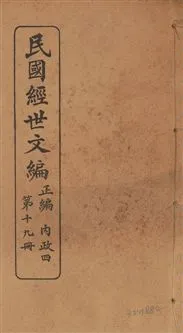 民國經世文編
正編 內政四
第十九冊